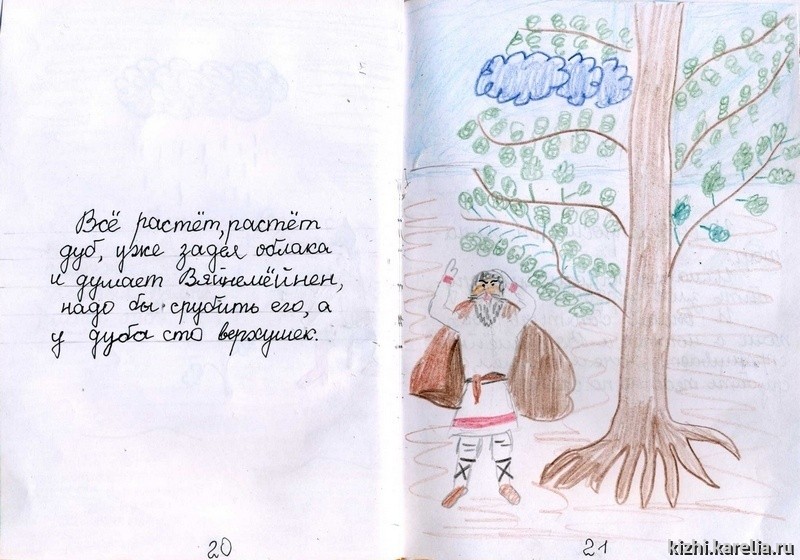 Всё растёт, растёт
дуб, уже задел облака
и думает Вяйнемёйнен,
надо бы срубить его, а
у дуба сто верхушек.
20
21
kizhi.karelia.ru